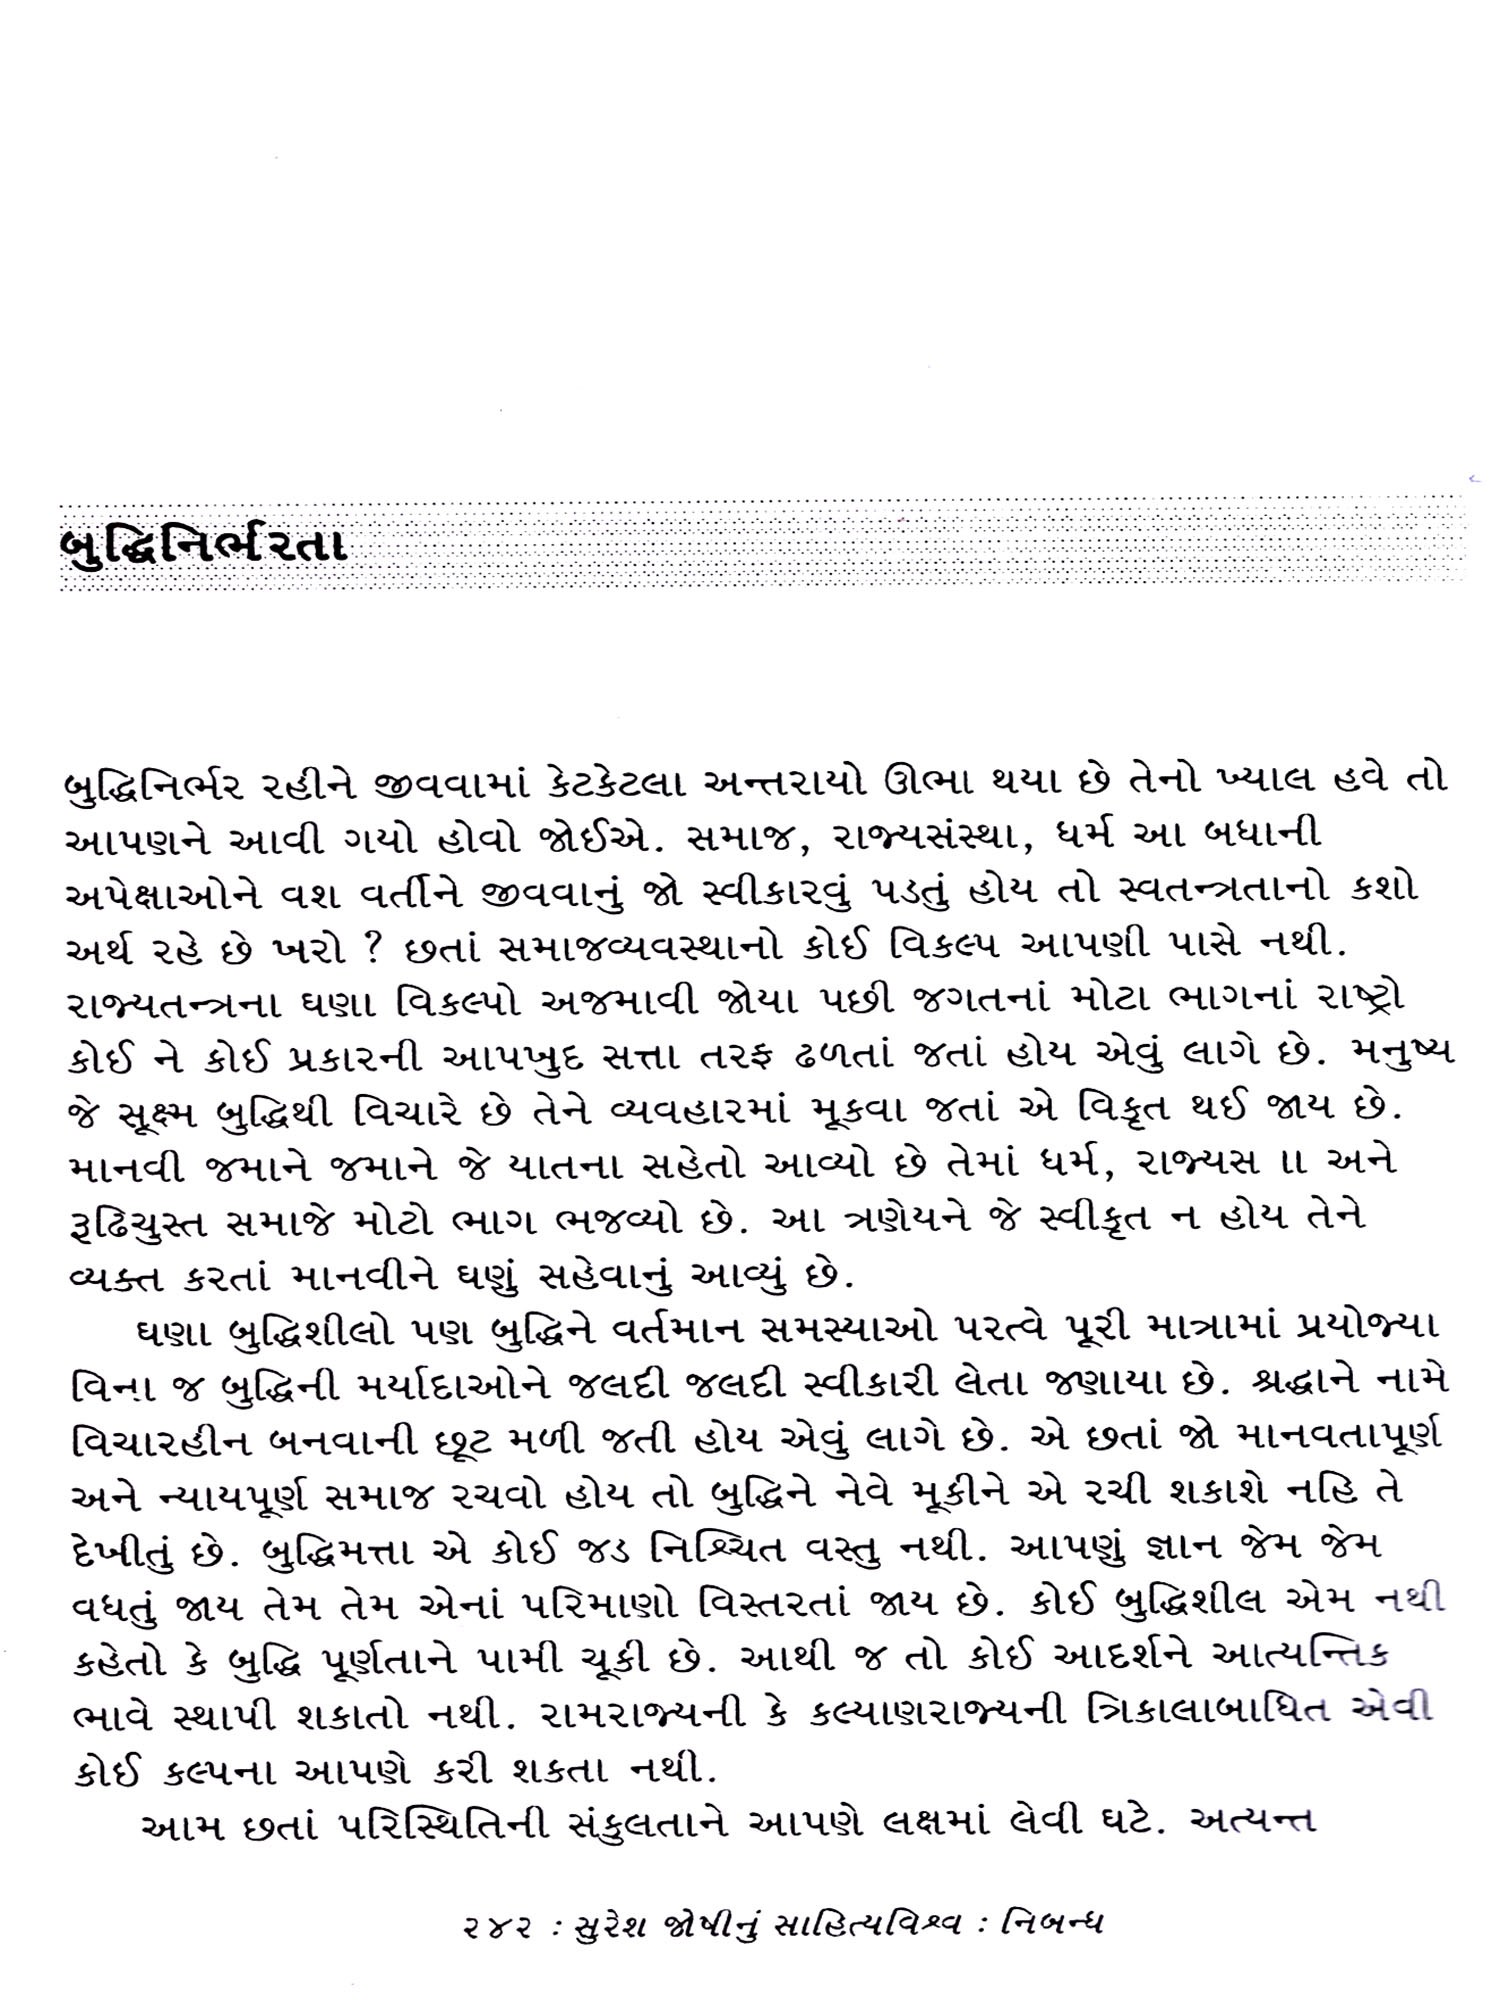 બુદ્ધિનિર્ભરતા
બુદ્ધિનિર્ભર રહીને જીવવામાં કેટકેટલા અન્તરાયો ઊભા થયા છે તેનો ખ્યાલ હવે તો
આપણને આવી ગયો હોવો જોઈએ. સમાજ, રાજ્યસંસ્થા, ધર્મ આ બધાની
અપેક્ષાઓને વશ વર્તીને જીવવાનું જો સ્વીકારવું પડતું હોય તો સ્વતન્ત્રતાનો કશો
અર્થ રહે છે ખરો ? છતાં સમાજવ્યવસ્થાનો કોઈ વિકલ્પ આપણી પાસે નથી.
રાજ્યતન્ત્રના ઘણા વિકલ્પો અજમાવી જોયા પછી જગતનાં મોટા ભાગનાં રાષ્ટ્રો
કોઈ ને કોઈ પ્રકારની આપખુદ સત્તા તરફ ઢળતાં જતાં હોય એવું લાગે છે. મનુષ્ય
જે સૂક્ષ્મ બુદ્ધિથી વિચારે છે તેને વ્યવહારમાં મૂકવા જતાં એ વિકૃત થઈ જાય છે.
માનવી જમાને જમાને જે યાતના સહેતો આવ્યો છે તેમાં ધર્મ, રાજ્યસ ાા અને
રૂઢિચુસ્ત સમાજે મોટો ભાગ ભજવ્યો છે. આ ત્રણેયને જે સ્વીકૃત ન હોય તેને
વ્યક્ત કરતાં માનવીને ઘણું સહેવાનું આવ્યું છે.
ઘણા બુદ્ધિશીલો પણ બુદ્ધિને વર્તમાન સમસ્યાઓ પરત્વે પૂરી માત્રામાં પ્રયોજ્યા
વિના જ બુદ્ધિની મર્યાદાઓને જલદી જલદી સ્વીકારી લેતા જણાયા છે. શ્રદ્ધાને નામે
વિચારહીન બનવાની છૂટ મળી જતી હોય એવું લાગે છે. એ છતાં જો માનવતાપૂર્ણ
અને ન્યાયપૂર્ણ સમાજ રચવો હોય તો બુદ્ધિને નેવે મૂકીને એ રચી શકાશે નહિ તે
દેખીતું છે. બુદ્ધિમત્તા એ કોઈ જડ નિશ્ચિત વસ્તુ નથી. આપણું જ્ઞાન જેમ જેમ
વધતું જાય તેમ તેમ એનાં પરિમાણો વિસ્તરતાં જાય છે. કોઈ બુદ્ધિશીલ એમ નથી
કહેતો કે બુદ્ધિ પૂર્ણતાને પામી ચૂકી છે. આથી જ તો કોઈ આદર્શને આત્યન્તિક
ભાવે સ્થાપી શકાતો નથી. રામરાજ્યની કે કલ્યાણરાજ્યની ત્રિકાલાબાધિત એવી
કોઈ કલ્પના આપણે કરી શકતા નથી.
આમ છતાં પરિસ્થિતિની સંકુલતાને આપણે લક્ષમાં લેવી ઘટે. અત્યન્ત
૨૪૨ : સુરેશ જોષીનું સાહિત્યવિશ્વ : નિબન્ધ